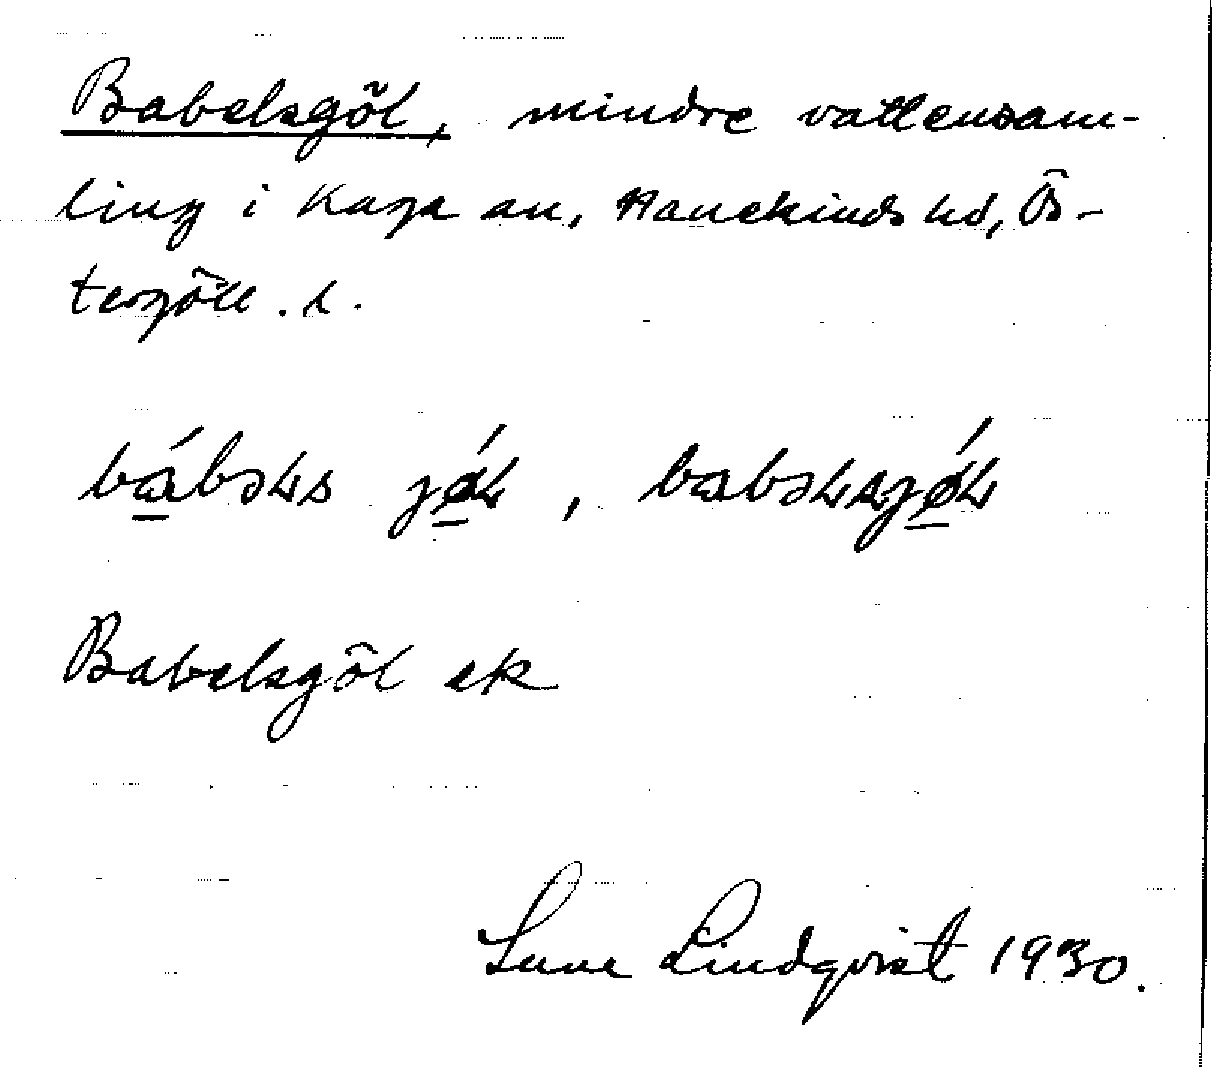 Babelsgöl, mindre vattensam-
ling i Kaga sn, Hanekinds hd, Ös-
tergötl. l.
bábəɫs jǿɫ, babəɫsjǿɫ
Babelsgöl ek
Sune Lindqvist 1930.